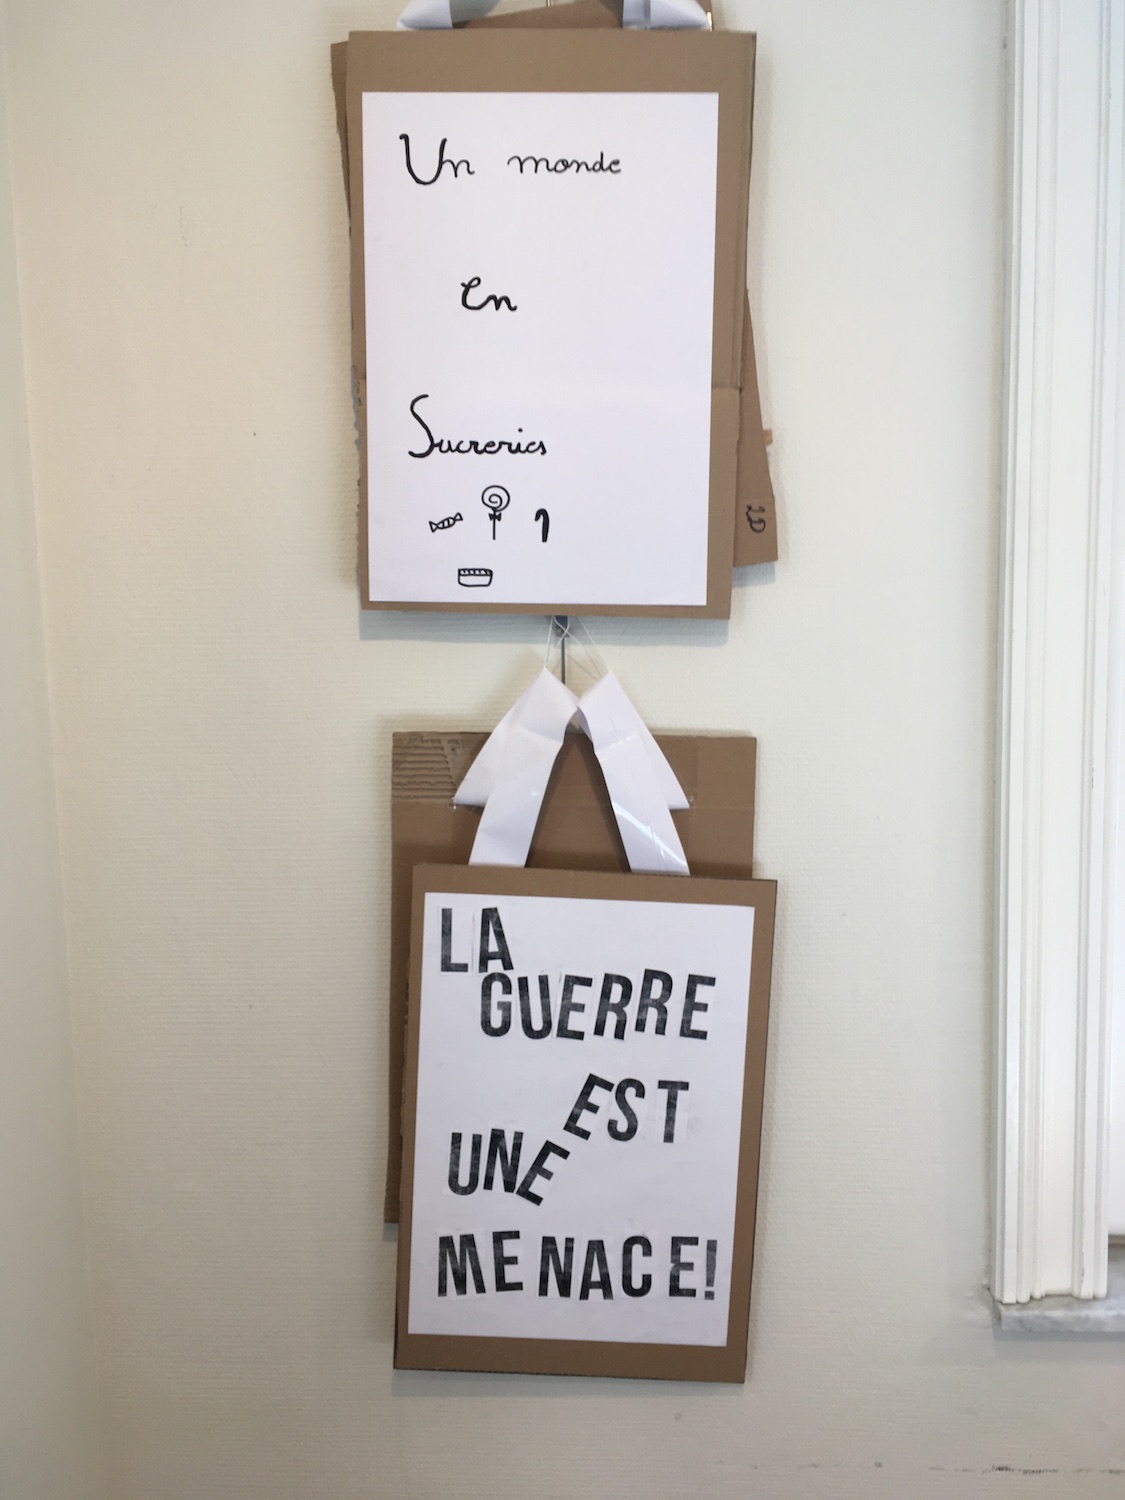 Un monde
en
Sucreries
2D
LA
GUERRE
EST
UNE
MENACE!